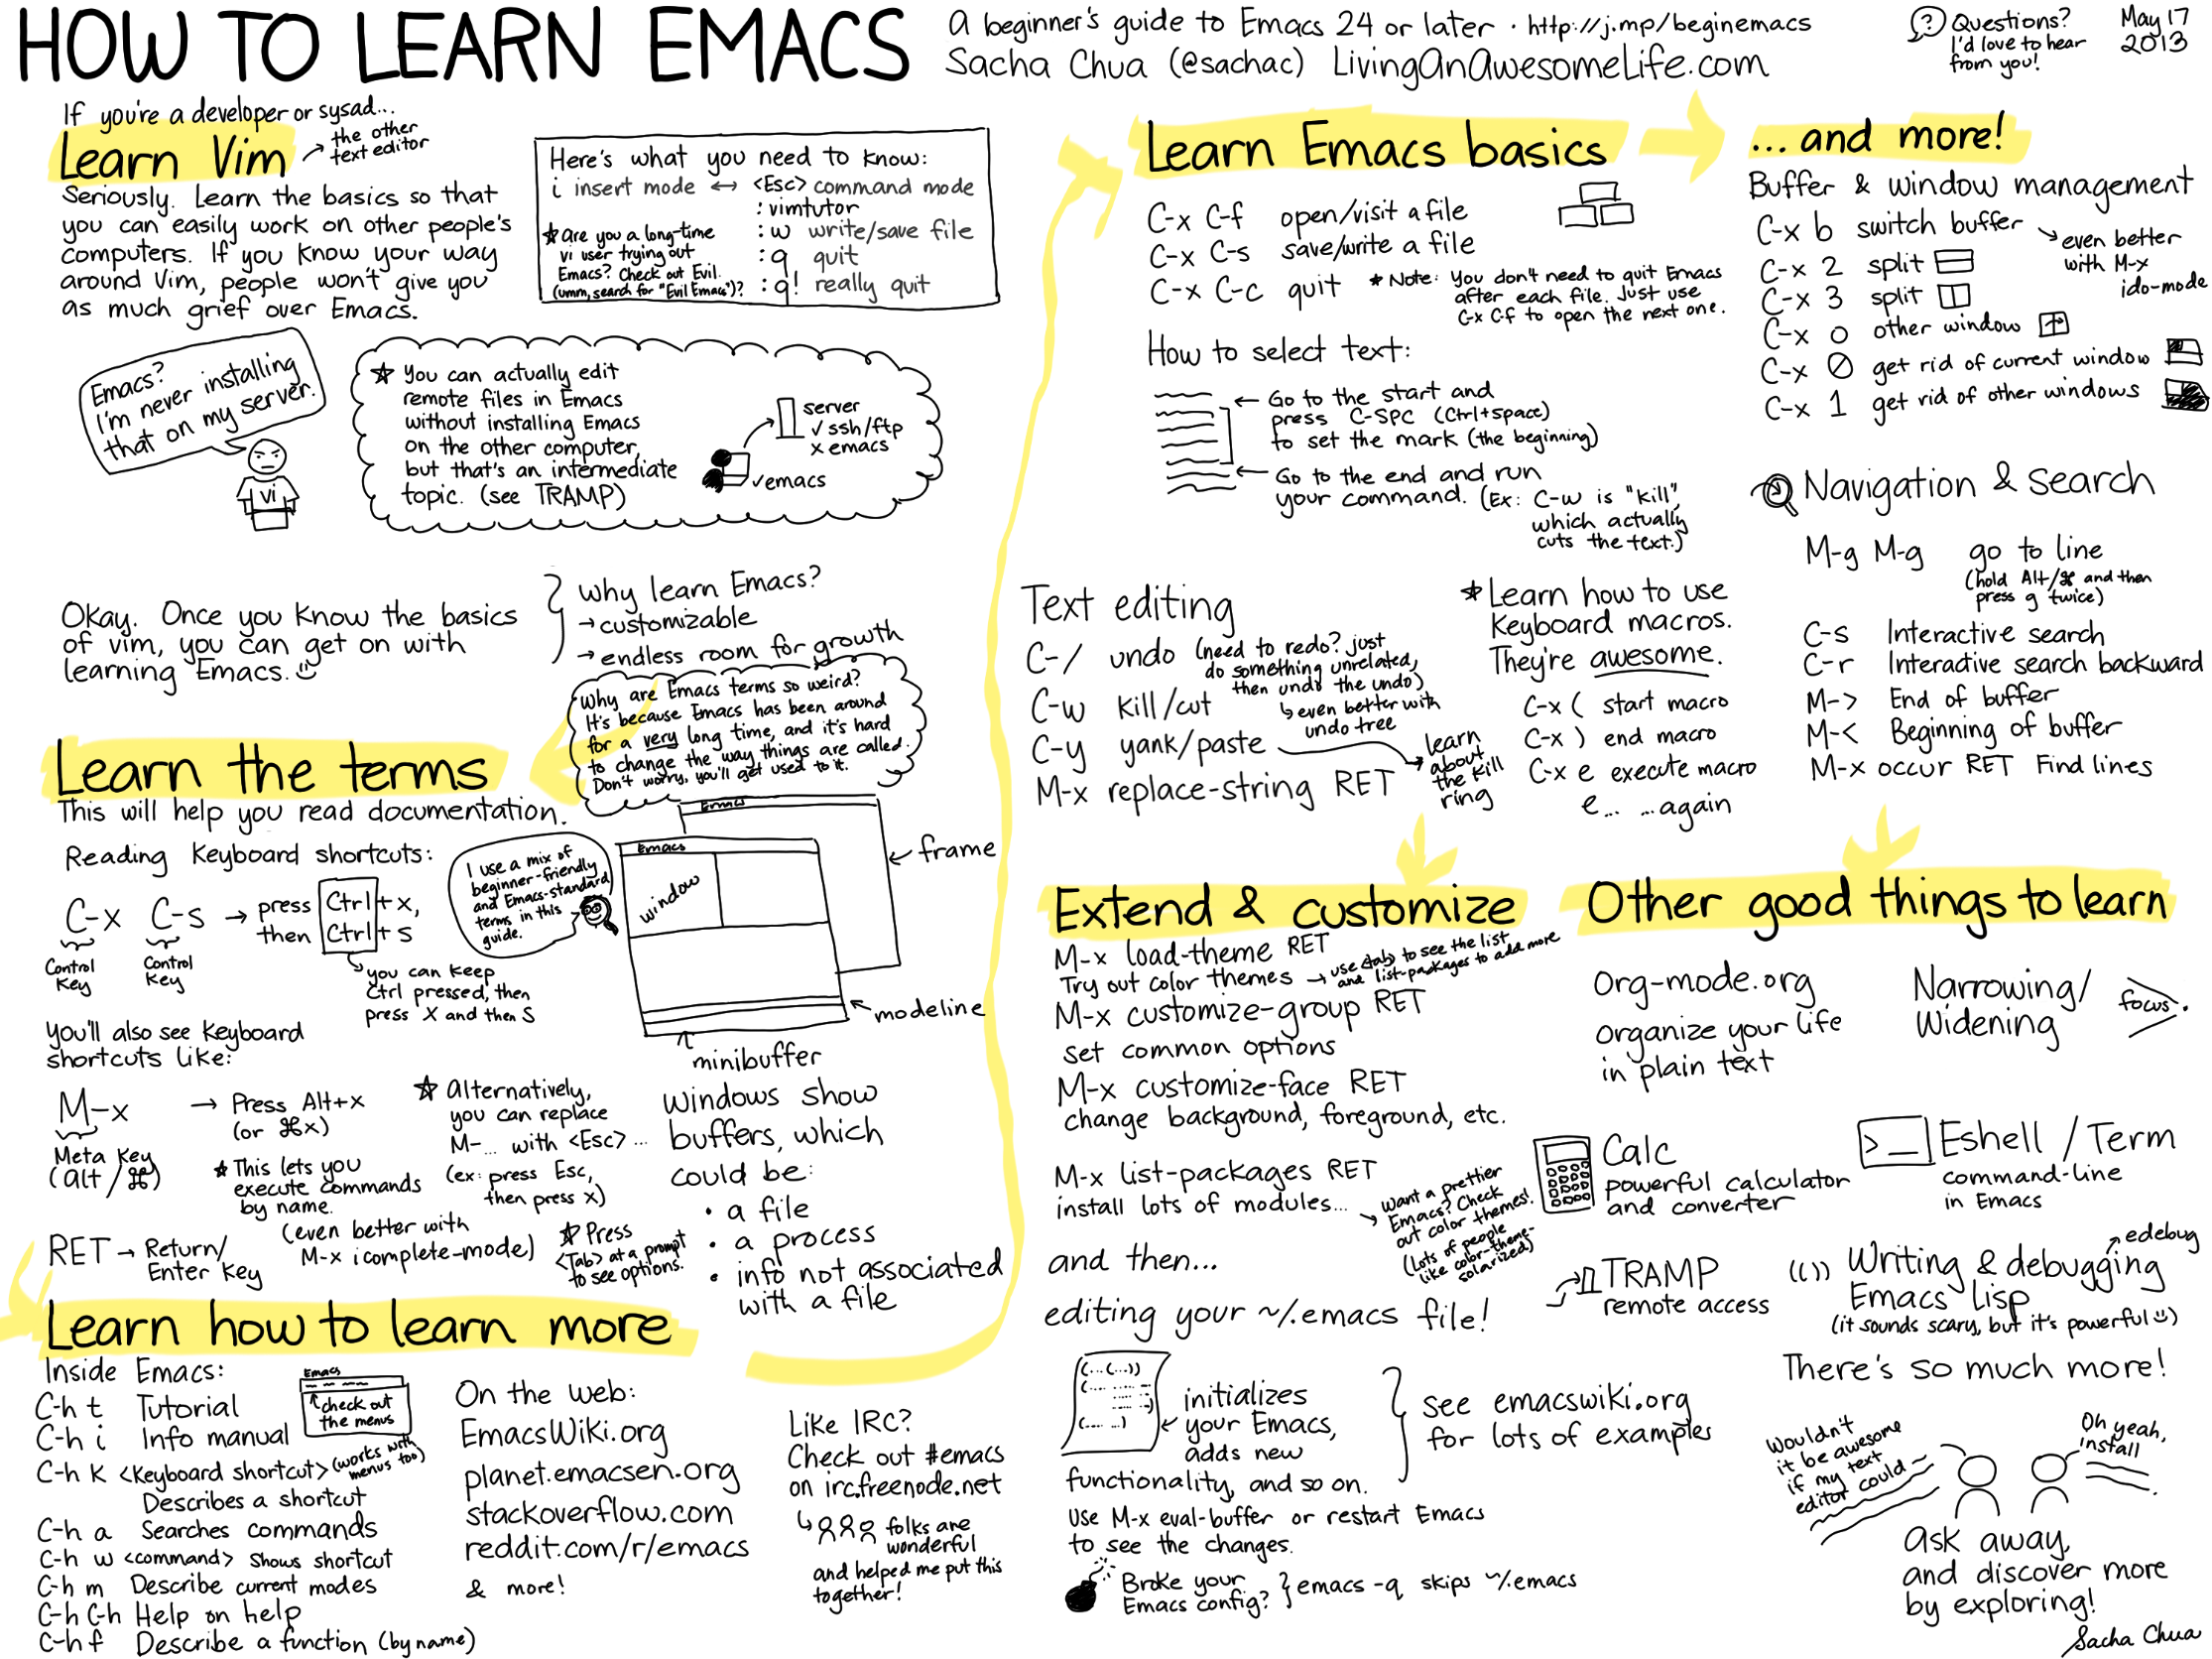 HOW TO LEARN EMACS
A beginner's guide to Emacs 24 or later · http://j.mp/beginemacs
Sacha Chua (@sachac) LivingAnAwesomeLife.com
Questions?
I'd love to hear
from you!
May 17
2013
If you're a developer or sysad...
Learn Vim
→ the other
text editor
Seriously. Learn the basics so that
you can easily work on other people's
computers. If you know your way
around Vim, people won't give you
as much grief over Emacs.
Here's what you need to know:
i insert mode ↔ <Esc> command mode
:vimtutor
:w write/save file
:q quit
:q! really quit
★ Are you a long-time
vi user trying out
Emacs? Check out Evil.
(umm, search for "Evil Emacs")?
Emacs?
I'm never installing
that on my server.
vi
★ You can actually edit
remote files in Emacs
without installing Emacs
on the other computer,
but that's an intermediate
topic. (see TRAMP)
server
✓ ssh/ftp
x emacs
✓emacs
Okay. Once you know the basics
of vim, you can get on with
learning Emacs.
Why learn Emacs?
→ customizable
→ endless room for growth
Why are Emacs terms so weird?
It's because Emacs has been around
for a very long time, and it's hard
to change the way things are called.
Don't worry, you'll get used to it.
Learn the terms
This will help you read documentation.
Reading keyboard shortcuts:
C-x C-s → press Ctrl+x,
then Ctrl+s
Control
Key
Control
Key
you can keep
Ctrl pressed, then
press X and then S
I use a mix of
beginner-friendly
and Emacs-standard
terms in this
guide.
Emacs
Emacs
window
← frame
← modeline
minibuffer
You'll also see keyboard
shortcuts like:
M-x → Press Alt+x
(or ⌘x)
Meta Key
(alt/⌘)
★ This lets you
execute commands
by name.
(even better with
M-x icomplete-mode)
★ Alternatively,
you can replace
M-... with <Esc>...
(ex: press Esc,
then press x)
RET → Return/
Enter key
★ Press
<Tab> at a prompt
to see options.
Windows show
buffers, which
could be:
• a file
• a process
• info not associated
with a file
Learn how to learn more
Inside Emacs:
C-h t Tutorial
C-h i Info manual
C-h k <keyboard shortcut> (works with
menus too)
Describes a shortcut
C-h a Searches commands
C-h w <command> Shows shortcut
C-h m Describe current modes
C-h C-h Help on help
C-h f Describe a function (by name)
Emacs
check out
the menus
On the web:
EmacsWiki.org
planet.emacsen.org
stackoverflow.com
reddit.com/r/emacs
& more!
Like IRC?
Check out #emacs
on irc.freenode.net
folks are
wonderful
and helped me put this
together!
Learn Emacs basics
C-x C-f open/visit a file
C-x C-s save/write a file
C-x C-c quit
★ Note: You don't need to quit Emacs
after each file. Just use
C-x C-f to open the next one.
How to select text:
← Go to the start and
press C-SPC (Ctrl+space)
to set the mark (the beginning)
← Go to the end and run
your command. (Ex: C-w is "kill",
which actually
cuts the text.)
Text editing
C-/ undo (need to redo? just
do something unrelated,
then undo the undo)
↳ even better with
undo tree
C-w kill/cut
C-y yank/paste
→ learn
about
the kill
ring
M-x replace-string RET
★ Learn how to use
keyboard macros.
They're awesome.
C-x ( start macro
C-x ) end macro
C-x e execute macro
e... ...again
...and more!
Buffer & window management
C-x b switch buffer
↘ even better
with M-x
ido-mode
C-x 2 split
C-x 3 split
C-x o other window
C-x 0 get rid of current window
C-x 1 get rid of other windows
Navigation & search
M-g M-g go to line
(hold Alt/⌘ and then
press g twice)
C-s Interactive search
C-r Interactive search backward
M-> End of buffer
M-< Beginning of buffer
M-x occur RET Find lines
Extend & customize
M-x load-theme RET
Try out color themes → use <tab> to see the list
and list-packages to add more
M-x customize-group RET
set common options
M-x customize-face RET
change background, foreground, etc.
M-x list-packages RET
install lots of modules...
→ Want a prettier
Emacs? Check
out color themes!
(Lots of people
like color-theme-
solarized)
and then...
editing your ~/.emacs file!
(...(...))
(.... .....
.... ...)
(.... ...)
← initializes
your Emacs,
adds new
functionality, and so on.
see emacswiki.org
for lots of examples
Use M-x eval-buffer or restart Emacs
to see the changes.
Broke your
Emacs config? } emacs -q skips ~/.emacs
Other good things to learn
Org-mode.org
organize your life
in plain text
Narrowing/
Widening
focus.
Calc
powerful calculator
and converter
>_ Eshell / Term
command-line
in Emacs
TRAMP
remote access
(()) Writing & debugging
Emacs Lisp
↗ edebug
(it sounds scary, but it's powerful)
There's so much more!
Wouldn't
it be awesome
if my text
editor could
Oh yeah,
install
Ask away,
and discover more
by exploring!
Sacha Chua